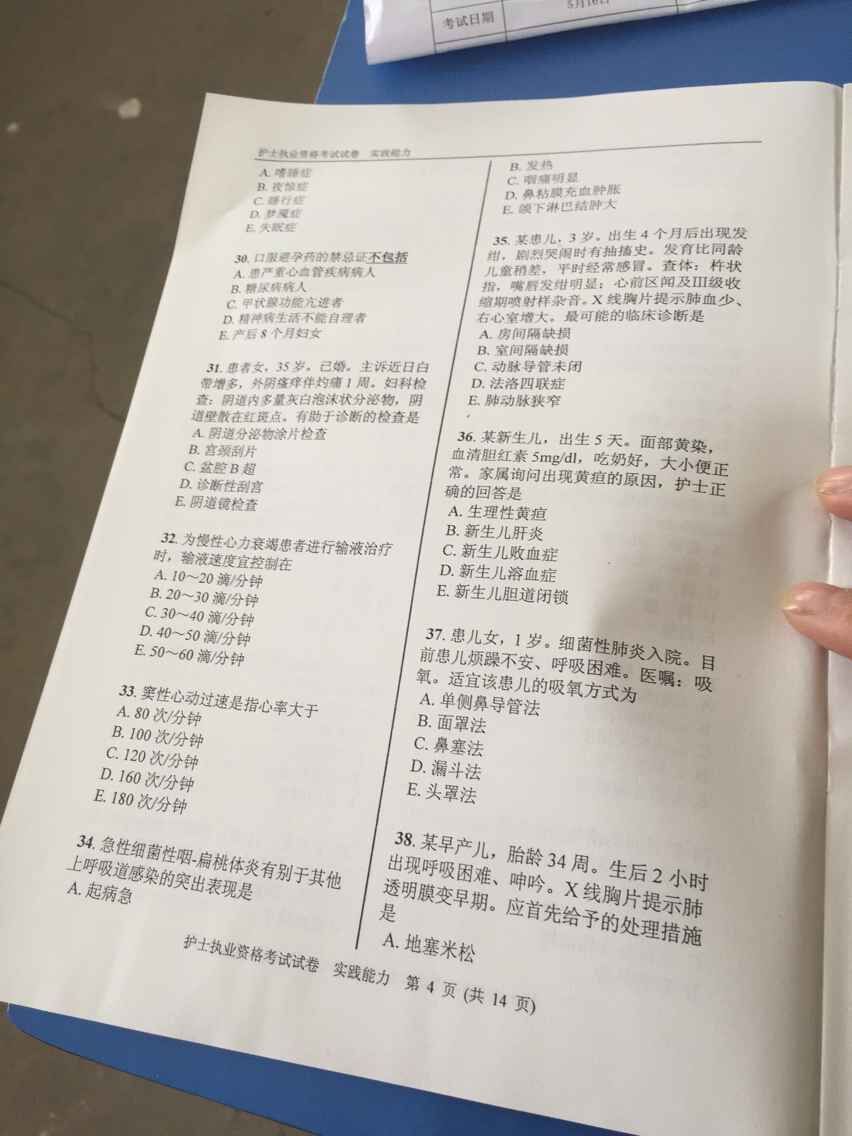 考试日期
5月16日
护士执业资格考试试卷 实践能力
A. 嗜睡症
B. 夜惊症
C. 睡行症
D. 梦魇症
E. 失眠症
30. 口服避孕药的禁忌证不包括
A. 患严重心血管疾病病人
B. 糖尿病病人
C. 甲状腺功能亢进者
D. 精神病生活不能自理者
E. 产后 8 个月妇女
31. 患者女，35 岁。已婚。主诉近日白
带增多，外阴瘙痒伴灼痛 1 周。妇科检
查：阴道内多量灰白泡沫状分泌物，阴
道壁散在红斑点。有助于诊断的检查是
A. 阴道分泌物涂片检查
B. 宫颈刮片
C. 盆腔 B 超
D. 诊断性刮宫
E. 阴道镜检查
32. 为慢性心力衰竭患者进行输液治疗
时，输液速度宜控制在
A. 10～20 滴/分钟
B. 20～30 滴/分钟
C. 30～40 滴/分钟
D. 40～50 滴/分钟
E. 50～60 滴/分钟
33. 窦性心动过速是指心率大于
A. 80 次/分钟
B. 100 次/分钟
C. 120 次/分钟
D. 160 次/分钟
E. 180 次/分钟
34. 急性细菌性咽-扁桃体炎有别于其他
上呼吸道感染的突出表现是
A. 起病急
B. 发热
C. 咽痛明显
D. 鼻粘膜充血肿胀
E. 颌下淋巴结肿大
35. 某患儿，3 岁。出生 4 个月后出现发
绀，剧烈哭闹时有抽搐史。发育比同龄
儿童稍差，平时经常感冒。查体：杵状
指，嘴唇发绀明显；心前区闻及Ⅲ级收
缩期喷射样杂音。X 线胸片提示肺血少、
右心室增大。最可能的临床诊断是
A. 房间隔缺损
B. 室间隔缺损
C. 动脉导管未闭
D. 法洛四联症
E. 肺动脉狭窄
36. 某新生儿，出生 5 天。面部黄染，
血清胆红素 5mg/dl，吃奶好，大小便正
常。家属询问出现黄疸的原因，护士正
确的回答是
A. 生理性黄疸
B. 新生儿肝炎
C. 新生儿败血症
D. 新生儿溶血症
E. 新生儿胆道闭锁
37. 患儿女，1 岁。细菌性肺炎入院。目
前患儿烦躁不安、呼吸困难。医嘱：吸
氧。适宜该患儿的吸氧方式为
A. 单侧鼻导管法
B. 面罩法
C. 鼻塞法
D. 漏斗法
E. 头罩法
38. 某早产儿，胎龄 34 周。生后 2 小时
出现呼吸困难、呻吟。X 线胸片提示肺
透明膜变早期。应首先给予的处理措施
是
A. 地塞米松
护士执业资格考试试卷 实践能力 第 4 页 (共 14 页)